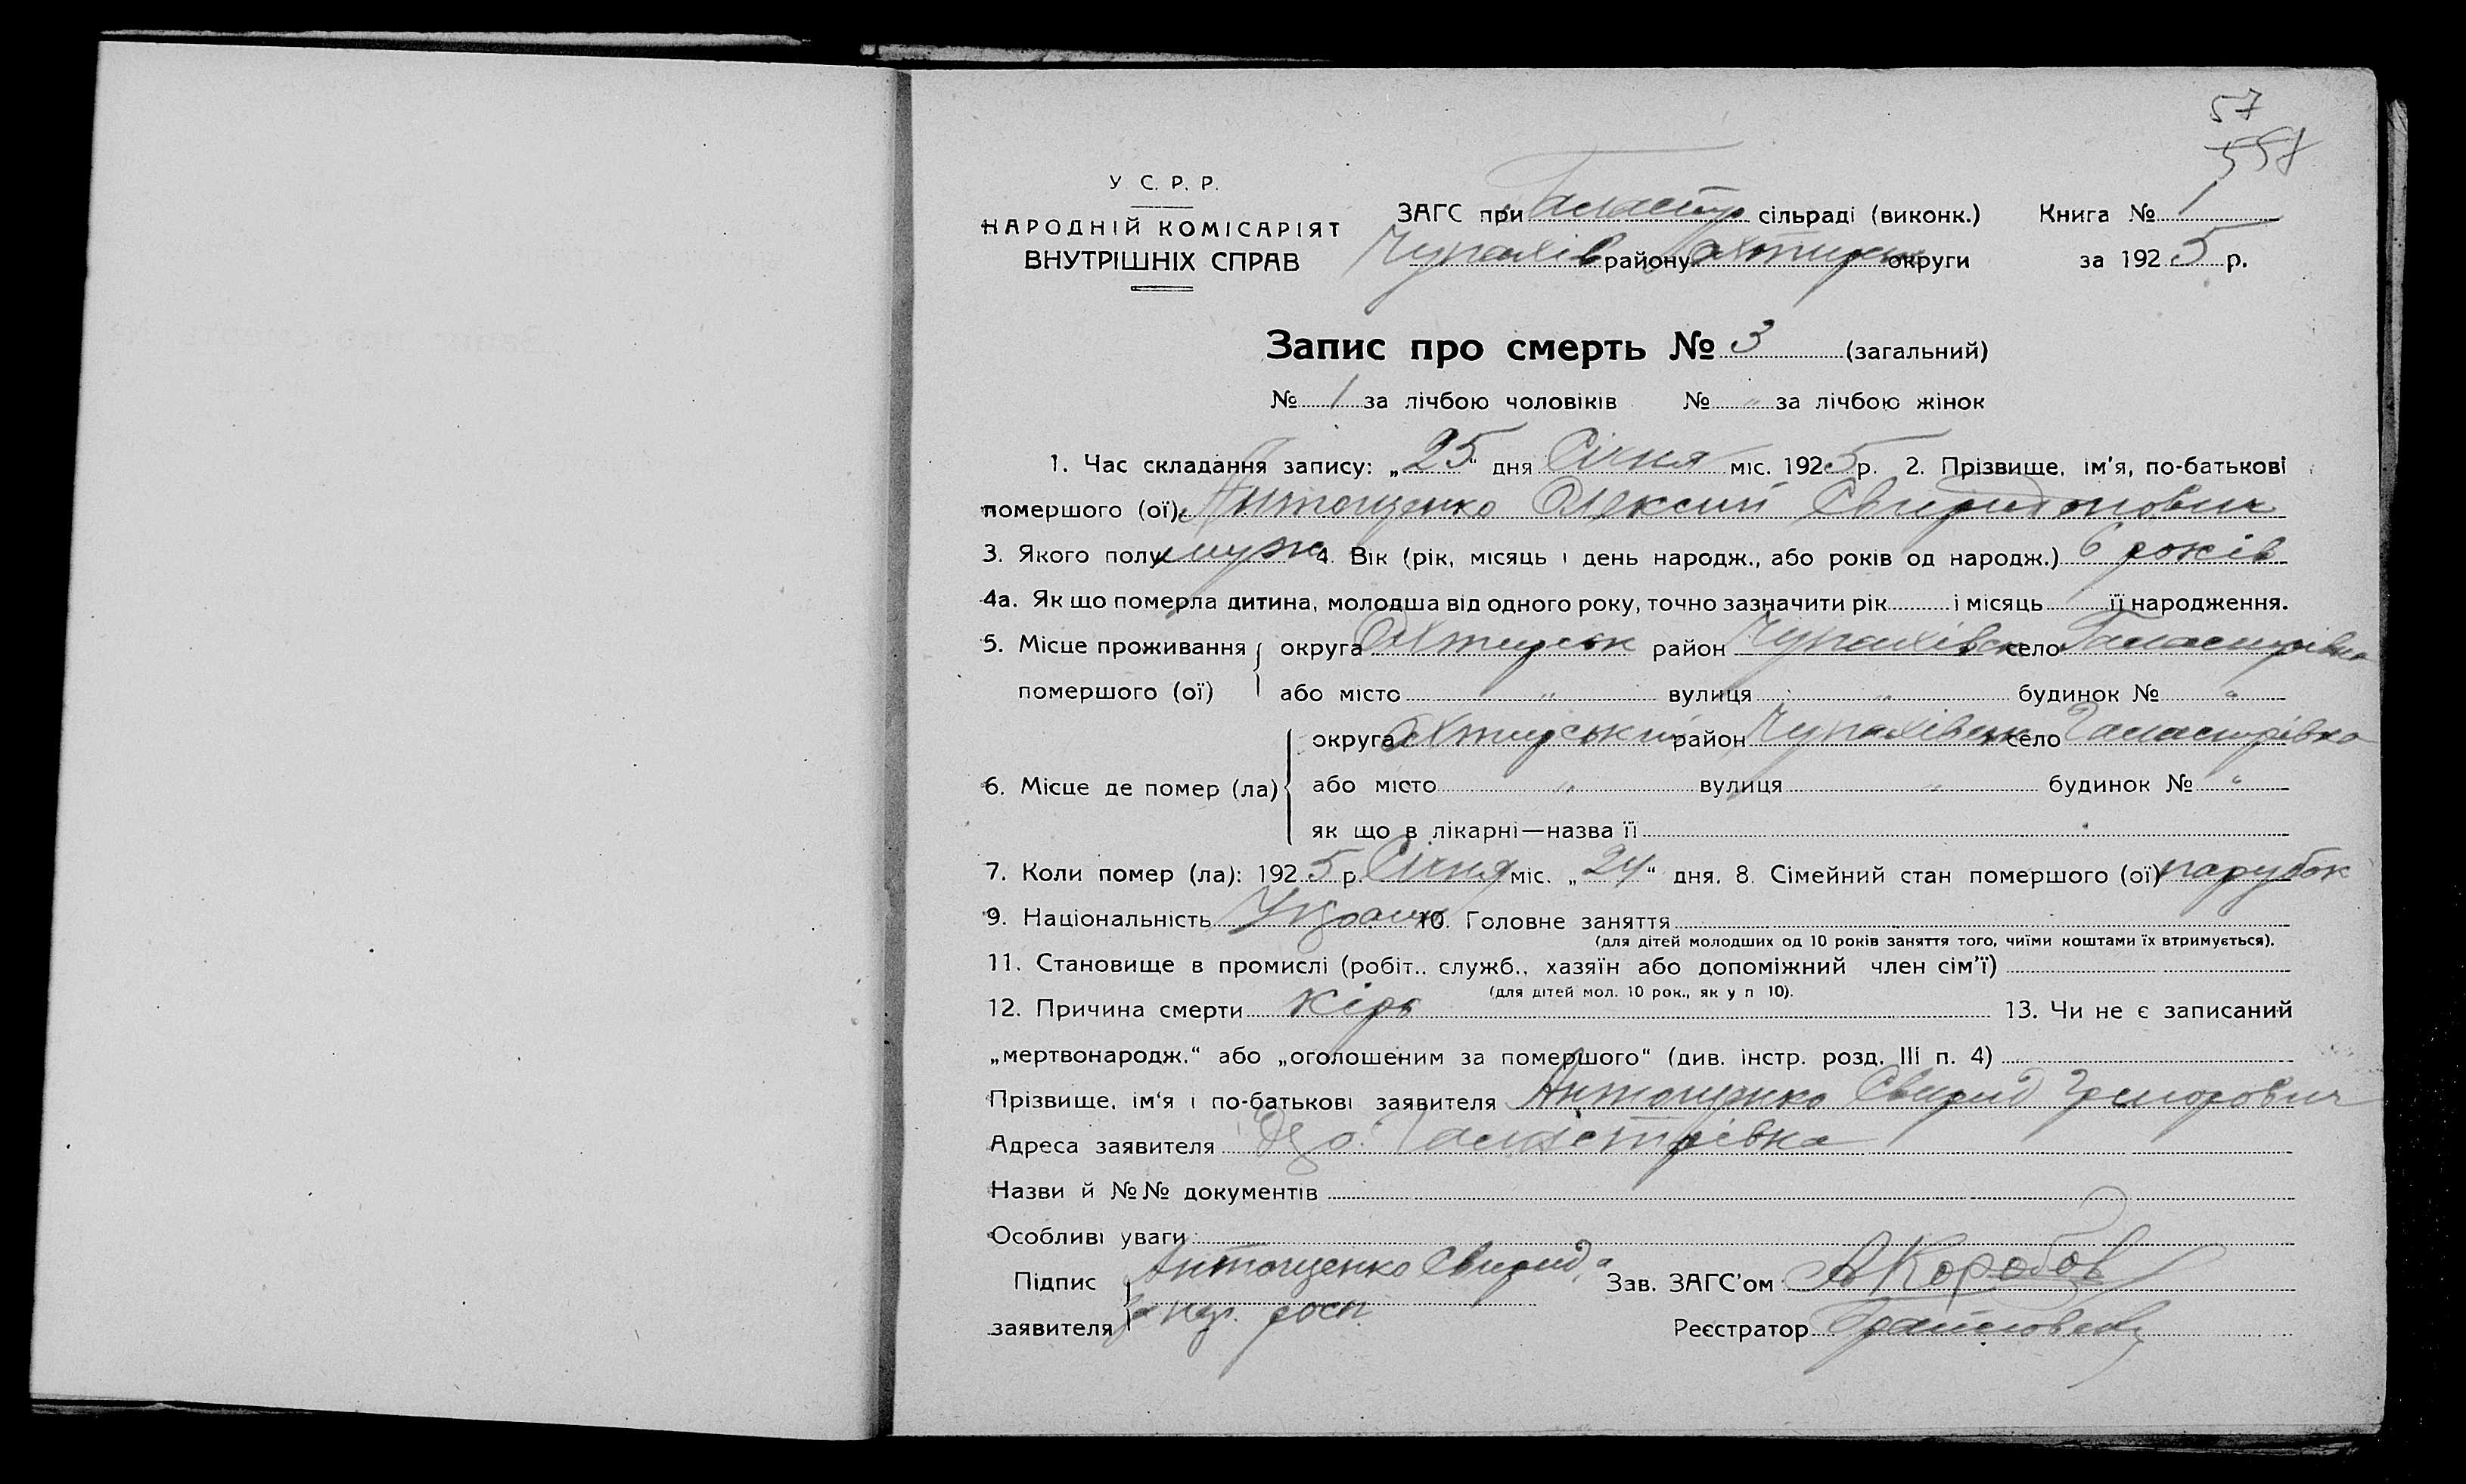 57
У С. Р. Р.
НАРОДНІЙ КОМІСАРІЯТ
ВНУТРІШНІХ СПРАВ
ЗАГС при сільраді (виконк.) Книга № 1
Чупахів району Охтирськ округи за 1925 р.
Запис про смерть № 3 (загальний)
№ 1 за лічбою чоловіків № " за лічбою жінок
1. Час складання запису: „25" дня Січня міс. 1925 р. 2. Прізвище, ім'я, по-батькові
помершого (ої) Антощенко Олексій Свиридонович
3. Якого полу муж 4. Вік (рік, місяць і день народж., або років од народж.) 6 років
4а. Як що померла дитина, молодша від одного року, точно зазначити рік і місяць її народження.
5. Місце проживання округа Охтирськ район Чупахівськ село
помершого (ої) або місто " вулиця " будинок № "
округа Охтирський район Чупахівськ село
6. Місце де помер (ла) або місто " вулиця " будинок № "
як що в лікарні—назва її
7. Коли помер (ла): 1925 р. Січня міс. „24" дня. 8. Сімейний стан помершого (ої) парубок
9. Національність 10. Головне заняття
(для дітей молодших од 10 років заняття того, чиїми коштами їх втримується).
11. Становище в промислі (робіт., служб., хазяїн або допоміжний член сім'ї)
(для дітей мол. 10 рок., як у п 10).
12. Причина смерти кірь 13. Чи не є записаний
„мертвонародж." або „оголошеним за помершого" (див. інстр. розд. III п. 4)
Прізвище, ім'я і по-батькові заявителя Антощенко Свирид Григорович
Адреса заявителя
Назви й №№ документів
Особливі уваги
Підпис Антощенко Свирида Зав. ЗАГС'ом АКоробов
заявителя Реєстратор